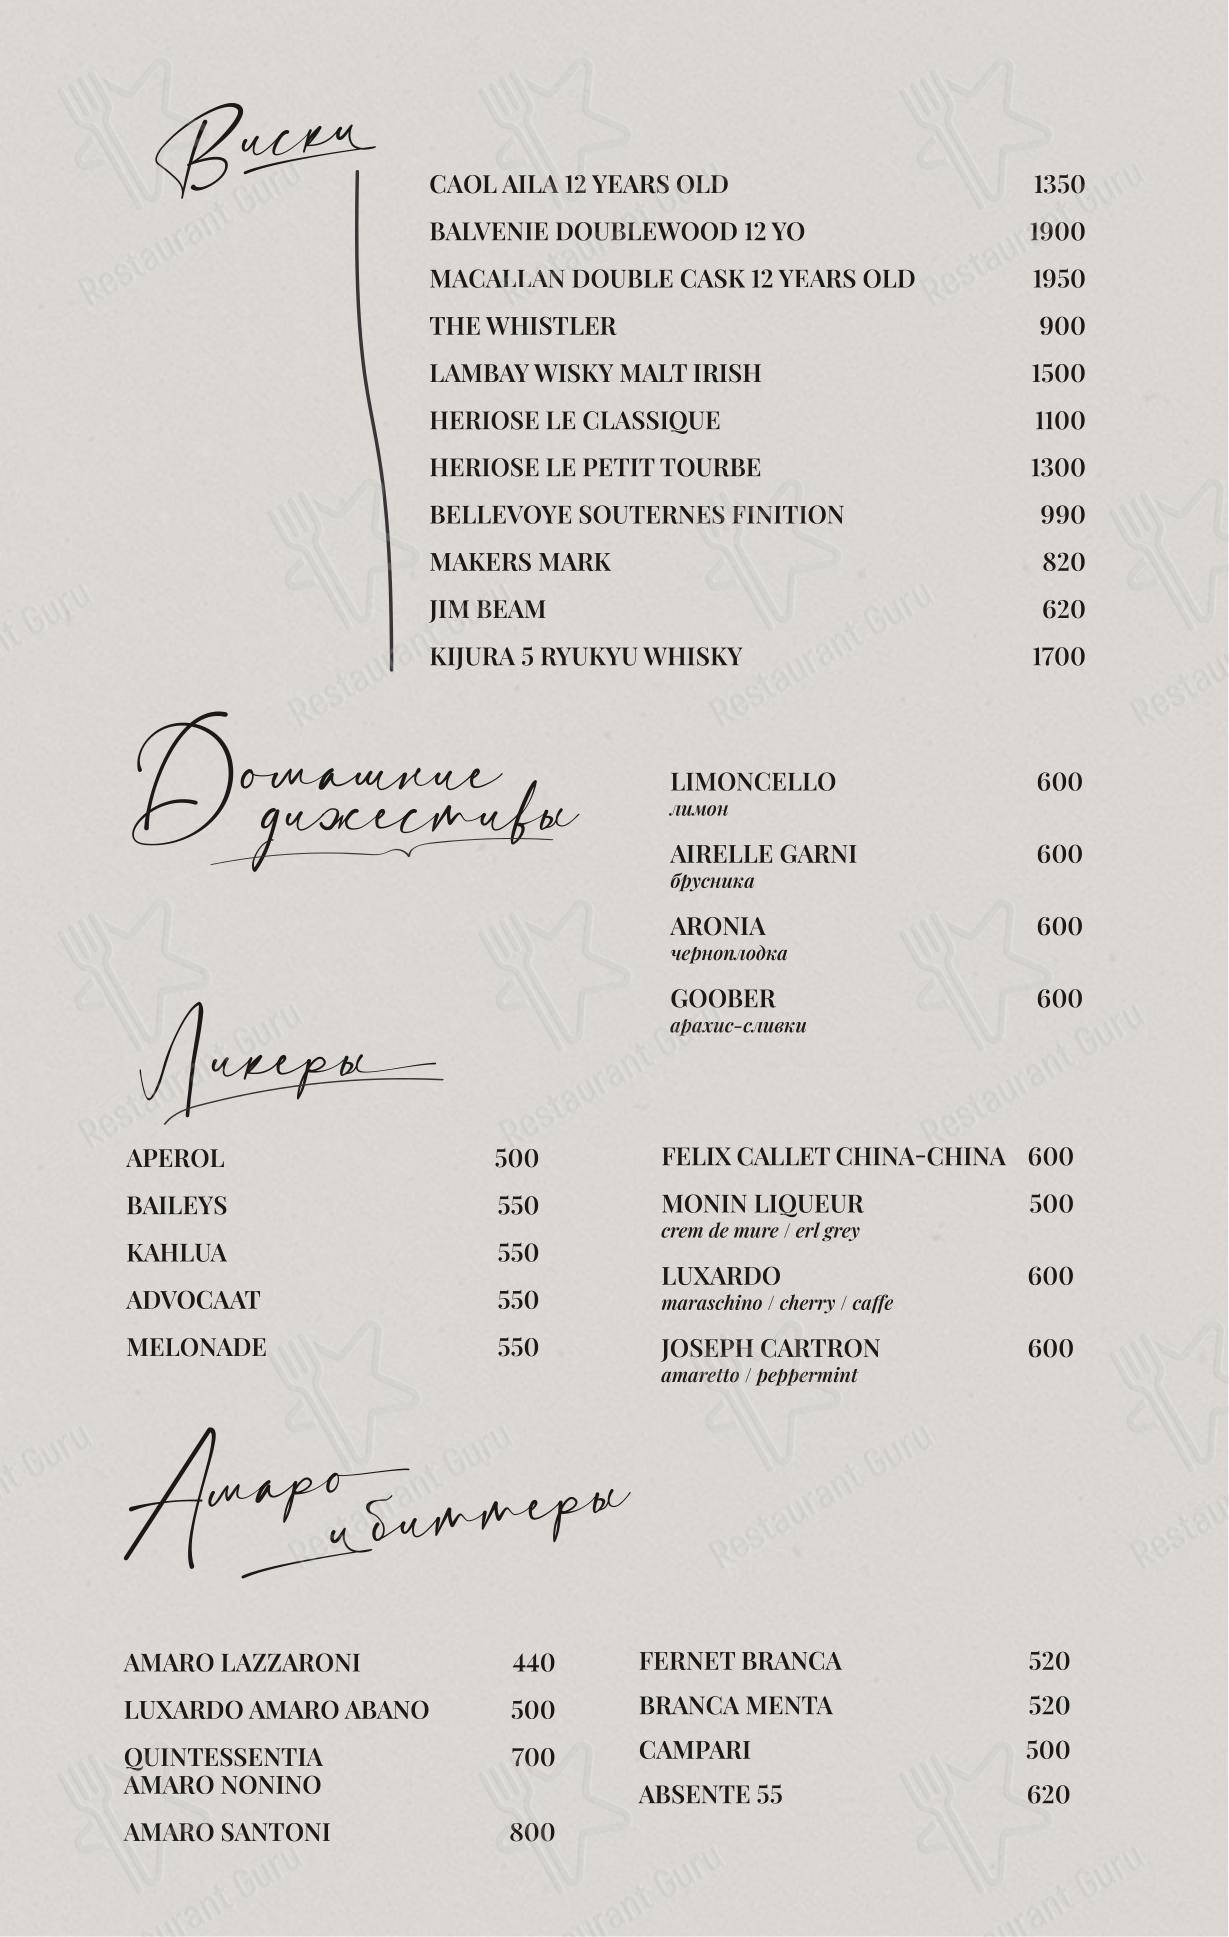 Виски
CAOL AILA 12 YEARS OLD 1350
BALVENIE DOUBLEWOOD 12 YO 1900
MACALLAN DOUBLE CASK 12 YEARS OLD 1950
THE WHISTLER 900
LAMBAY WISKY MALT IRISH 1500
HERIOSE LE CLASSIQUE 1100
HERIOSE LE PETIT TOURBE 1300
BELLEVOYE SOUTERNES FINITION 990
MAKERS MARK 820
JIM BEAM 620
KIJURA 5 RYUKYU WHISKY 1700
Домашние
дижестивы
LIMONCELLO 600
лимон
AIRELLE GARNI 600
брусника
ARONIA 600
черноплодка
GOOBER 600
арахис-сливки
Ликеры
APEROL 500
BAILEYS 550
KAHLUA 550
ADVOCAAT 550
MELONADE 550
FELIX CALLET CHINA-CHINA 600
MONIN LIQUEUR 500
crem de mure / erl grey
LUXARDO 600
maraschino / cherry / caffe
JOSEPH CARTRON 600
amaretto / peppermint
Амаро
и биттеры
AMARO LAZZARONI 440
LUXARDO AMARO ABANO 500
QUINTESSENTIA 700
AMARO NONINO
AMARO SANTONI 800
FERNET BRANCA 520
BRANCA MENTA 520
CAMPARI 500
ABSENTE 55 620
Restaurant Guru